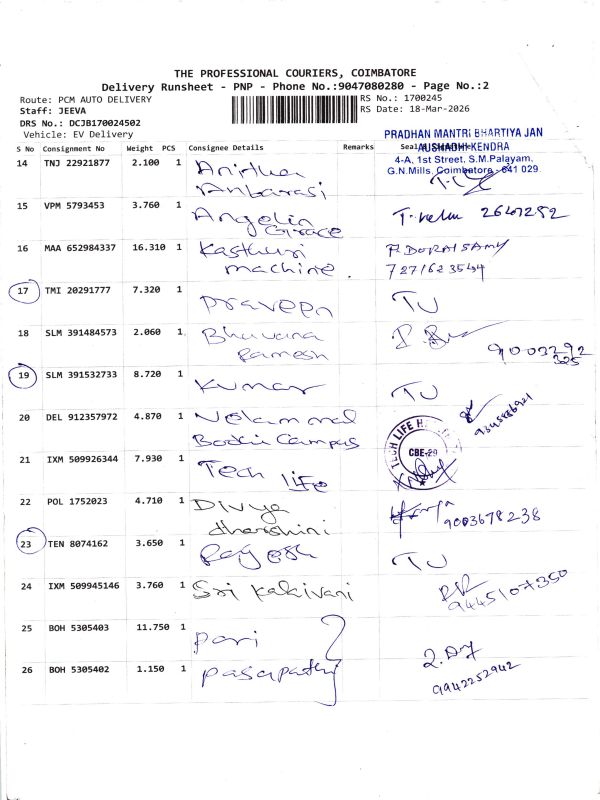 THE PROFESSIONAL COURIERS, COIMBATORE
Delivery Runsheet - PNP - Phone No.:9047080280 - Page No.:2
Route: PCM AUTO DELIVERY RS No.: 1700245
Staff: JEEVA RS Date: 18-Mar-2026
DRS No.: DCJB170024502
Vehicle: EV Delivery
PRADHAN MANTRI BHARTIYA JAN
AUSHADHI KENDRA
4-A, 1st Street, S.M.Palayam,
G.N.Mills, Coimbatore - 641 029.
S No Consignment No Weight PCS Consignee Details Remarks Seal
14 TNJ 22921877 2.100 1 Anitha
Anbarasi
15 VPM 5793453 3.760 1 Angelin
Grace
16 MAA 652984337 16.310 1 Kasthuri P. DORAISAMY
machine.
17 TMI 20291777 7.320 1 Praveen TU
18 SLM 391484573 2.060 1 Bhuvana
Ramesh
19 SLM 391532733 8.720 1 Kumar TU
20 DEL 912357972 4.870 1 Velammal
Bodhi Campus
21 IXM 509926344 7.930 1 Tech Life
TECH LIFE
CBE-29
22 POL 1752023 4.710 1 Divya
dharshini 9003678238
23 TEN 8074162 3.650 1 Rajesh TU
24 IXM 509945146 3.760 1 Sri Kalaivani
9445107350
25 BOH 5305403 11.750 1 Pari
26 BOH 5305402 1.150 1 Pasapathy
9942252942